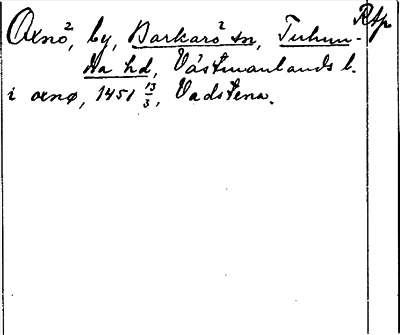 Oxnö², by, Barkarö² sn, Tuhun- Rtp
dra hd, Västmanlands l.
i oxnø, 1451 13/3, Vadstena.